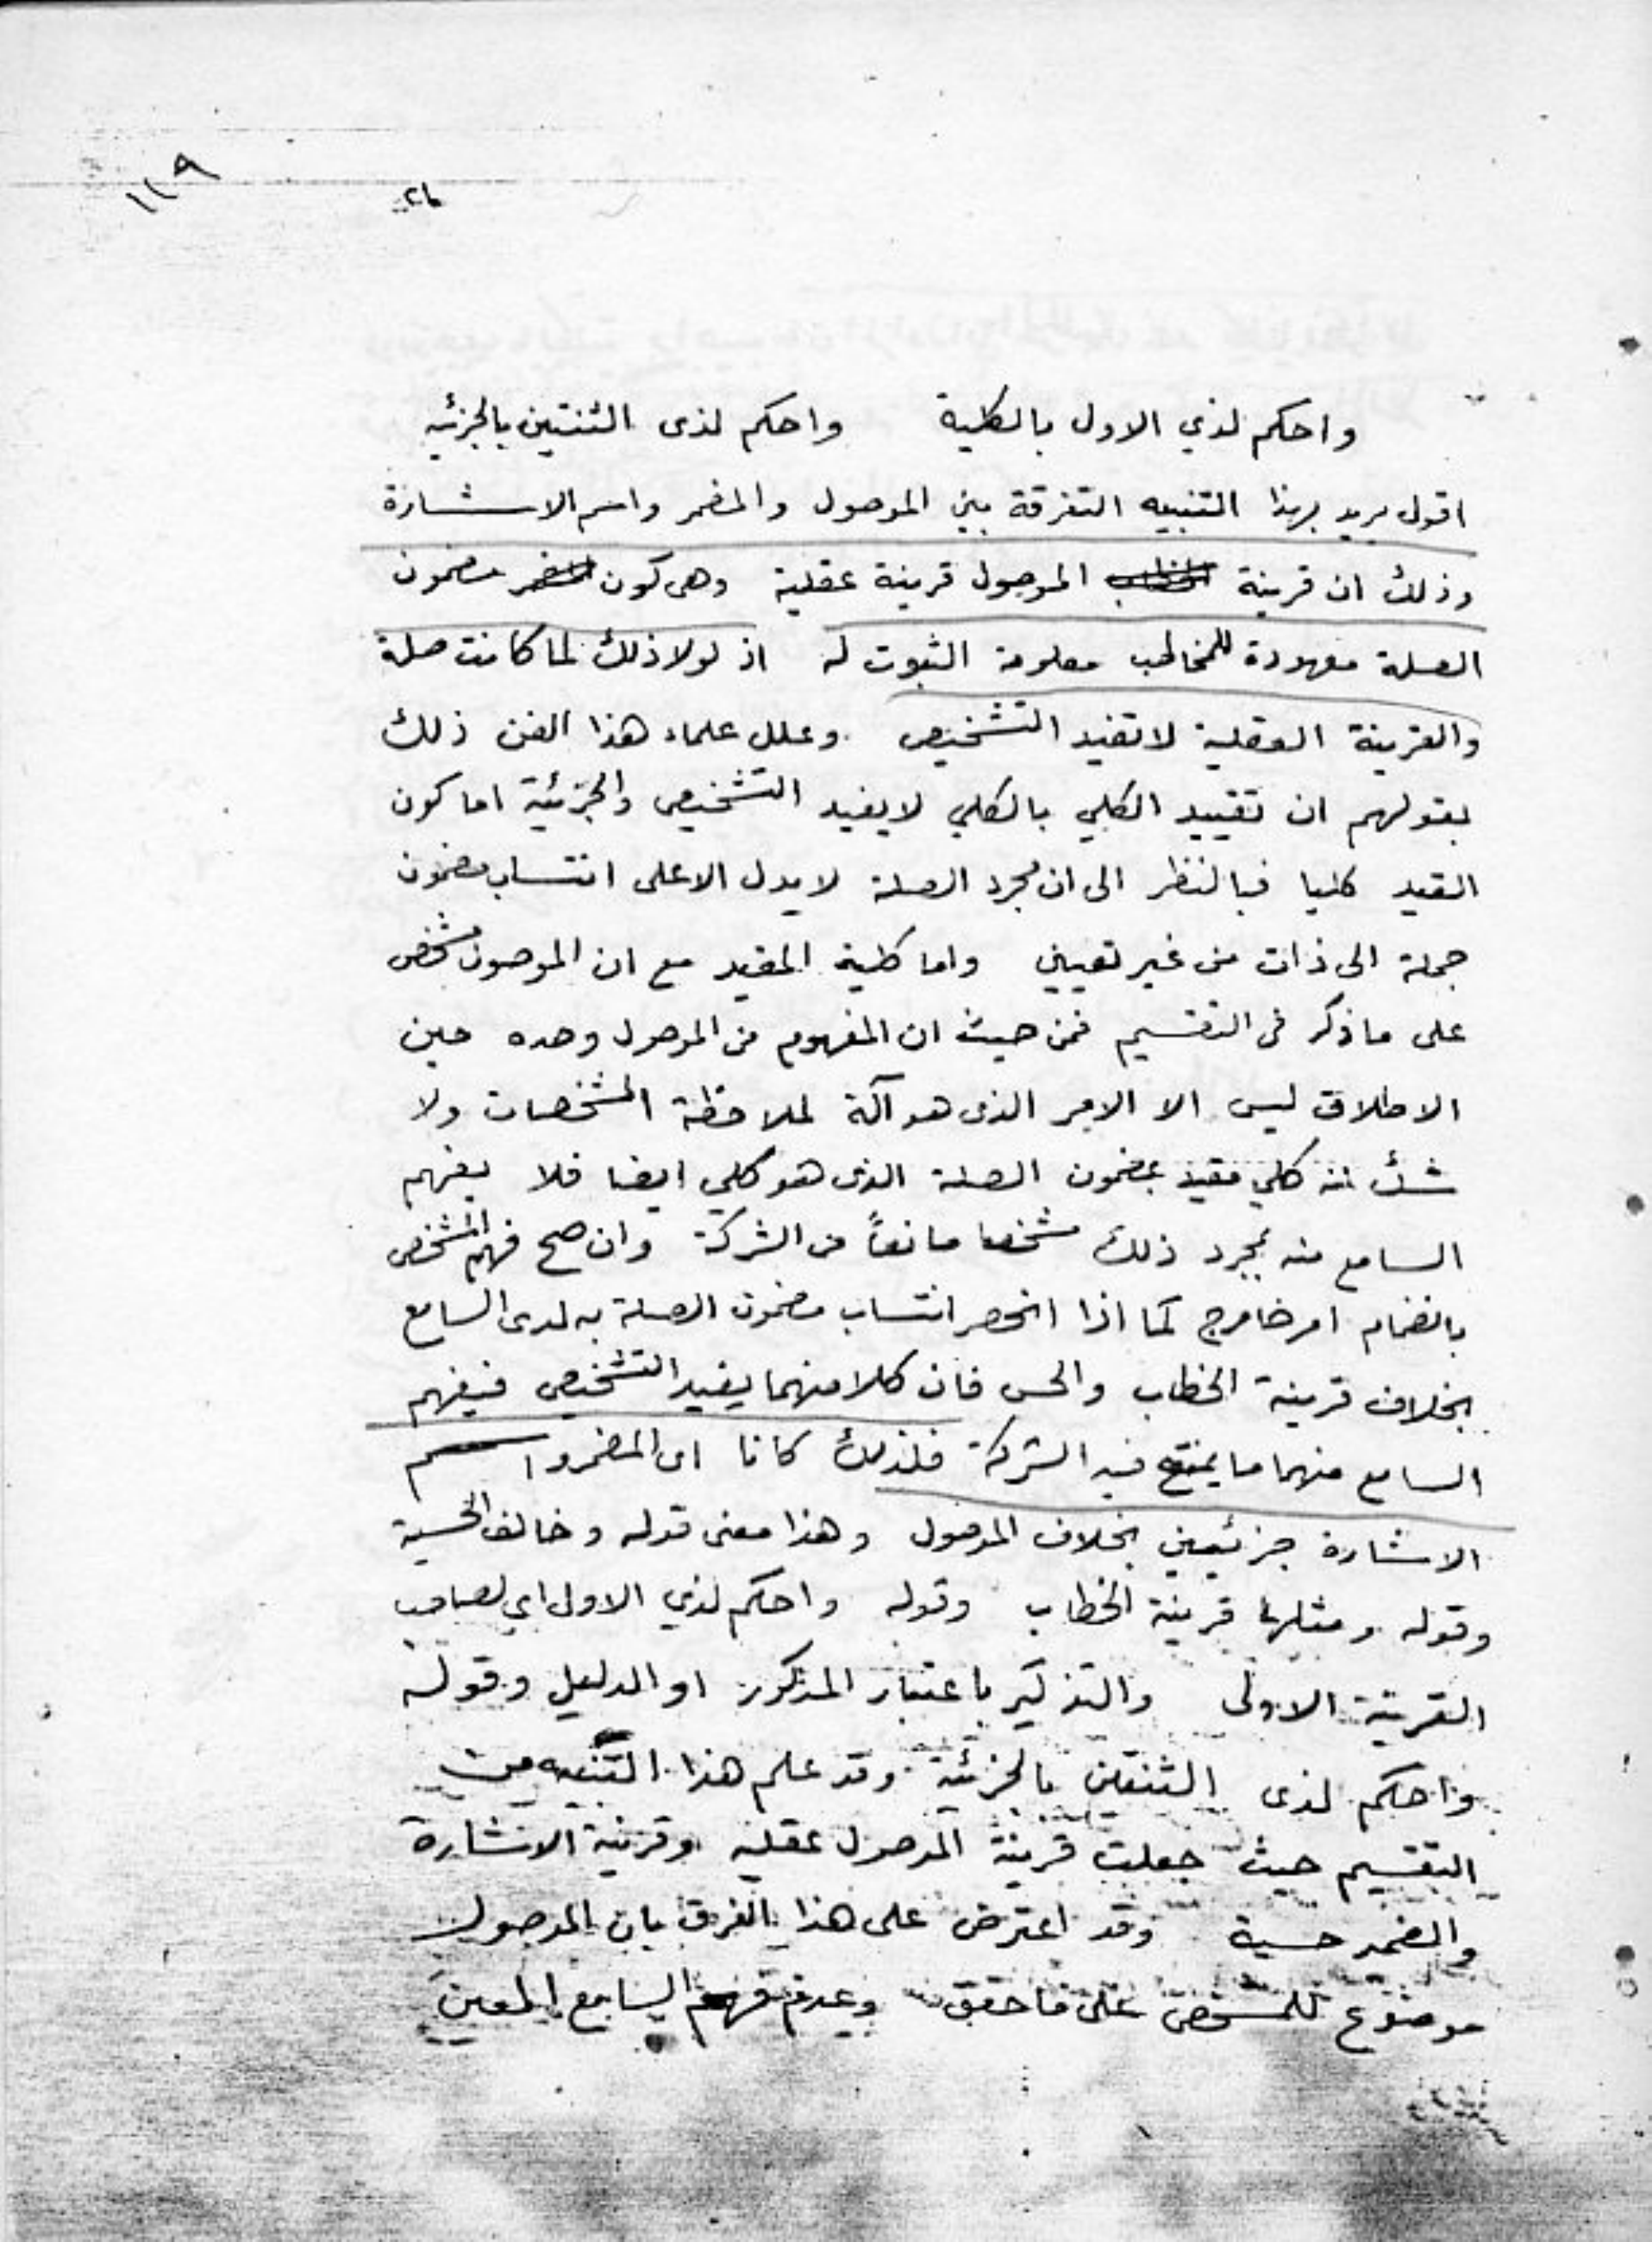 ١١٩
واحكم لذي الاول بالكلية واحكم لذى الثنتين بالجزئيه
اقول يريد بهذا التنبيه التفرقة بين الموصول والمضمر واسم الاشارة
وذلك ان قرينة الموصول قرينة عقلية وهى كون مضمون
الصلة معهودة للمخاطب معلومة الثبوت له اذ لولا ذلك لما كانت صلة
والقرينة العقلية لا تفيد التشخيص وعلل علماء هذا الفن ذلك
بقولهم ان تقييد الكلي بالكلي لا يفيد التشخيص والجزئية اما كون
القيد كليا فبالنظر الى ان مجرد الصلة لا يدل الا على انتساب مضمون
جملة الى ذات من غير تعيين واما كلية المقيد مع ان الموصول مشخص
على ما ذكر فى التقسيم فمن حيث ان المفهوم من الموصول وحده حين
الاطلاق ليس الا الامر الذى هو آلة لملاحظة المشخصات ولا
شك انه كلي مقيد بمضمون الصلة الذى هو كلي ايضا فلا يفهم
السامع منه بمجرد ذلك مشخصا مانعاً من الشركة وان صح فهم المشخص
بانضمام امر خارج كما اذا انحصر انتساب مضمون الصلة به لدى السامع
بخلاف قرينة الخطاب والحس فان كلا منهما يفيد التشخيص فيفهم
السامع منهما ما يمتنع فيه الشركة فلذلك كانا اى المضمر واسم
الاشارة جزئيين بخلاف الموصول وهذا معنى قوله وخالف الحسية
وقوله ومثلها قرينة الخطاب وقوله واحكم لذي الاول اي لصاحب
القرينة الاولى والتذكير باعتبار المذكور او الدليل وقوله
واحكم لذى الثنتين بالجزئية وقد علم هذا التنبيه من
التقسيم حيث جعلت قرينة الموصول عقليه وقرينة الاشارة
والضمير حسية وقد اعترض على هذا الفرق بان الموصول
موضوع للمشخص على ما حقق وعدم فهم السامع المعين